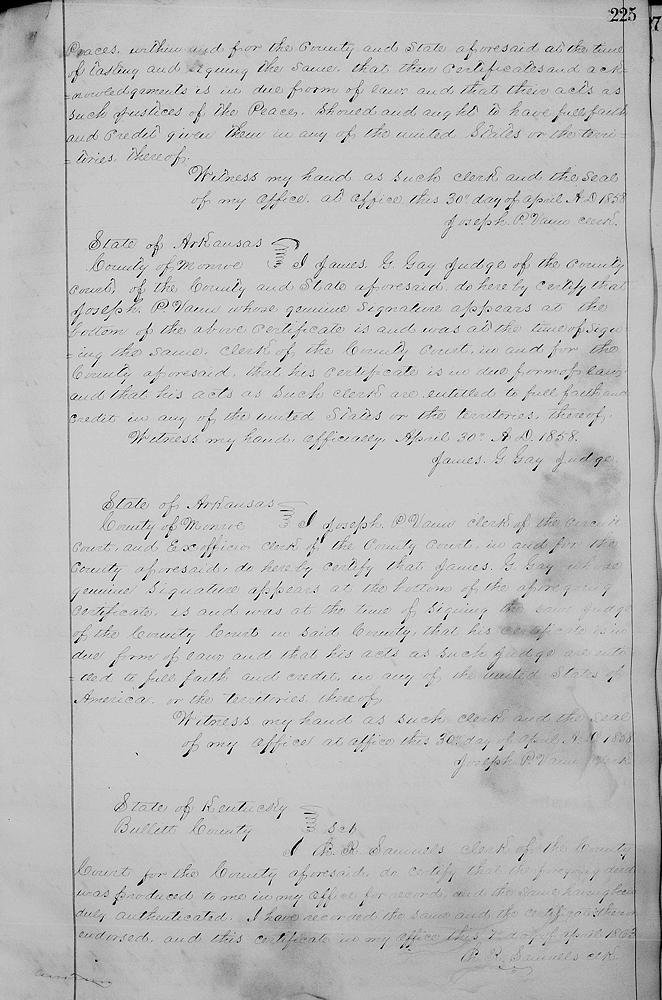 225
Peaces. within and for the County and State aforesaid at the time
of tasting and signing the Same. that their Certificates and ack=
=nowledgements is in due form of law and that their acts as
such Justices of the Peace. Should and aught to have full faith
and Credit given them in any of the united States or the terri=
=tories. thereof.
Witness my hand as Such clerk and the Seal
of my office. at office this 30th day of april A.D 1858
Joseph. P. Vann clerk.
State of Arkansas
County of Monroe I James. G. Gay Judge of the County
court, of the County and State aforesaid, do here by certify that
Joseph. P. Vann whose genuine Signature appears at the
bottom of the above Certificate is and was at the time of sign
=ing the Same. clerk of the County Court, in and for the
County aforesaid, that his Certificate is in due form of law
and that his acts as Such Clerk are entitled to full faith and
credit in any of the united States or the territories. thereof.
Witness my hand. officially April 30th A.D. 1858.
James. G. Gay Judge
State of Arkansas
County of Monroe I Joseph. P. Vann clerk of the Circuit
Court, and Ex officio clerk of the County Court, in and for the
County aforesaid, do here by certify that James. G Gay whose
genuine Signature appears at the bottom of the aforegoing
Certificate. is and was at the time of Signing the same Judge
of the County Court in said County, that his certificate is in
due form of law and that his acts as such Judge are enti
=tled to full faith and credit, in any of the united States of
America. or the territories. thereof,
Witness my hand as such clerk and the Seal
of my office at office this 30th day of April A.D 1858
Joseph P. Vann Clerk
State of Kentucky
Bullett County Sct
I R. R. Samuels clerk of the County
Court for the County aforesaid. do certify that the foregoing deed
was produced to me in my office for record, and the Same having been
duly authenticated. I have recorded the same and the certificates thereon
endorsed. and this certificate in my office this day of april
Samuels clk